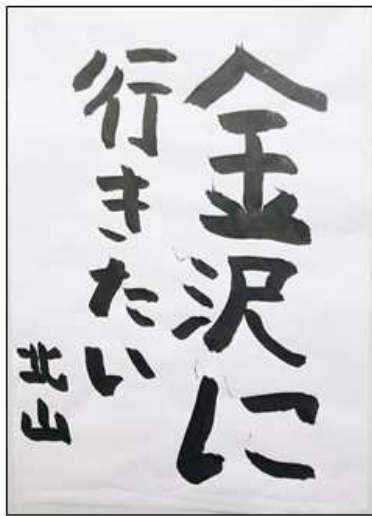 金沢に
行きたい
北山